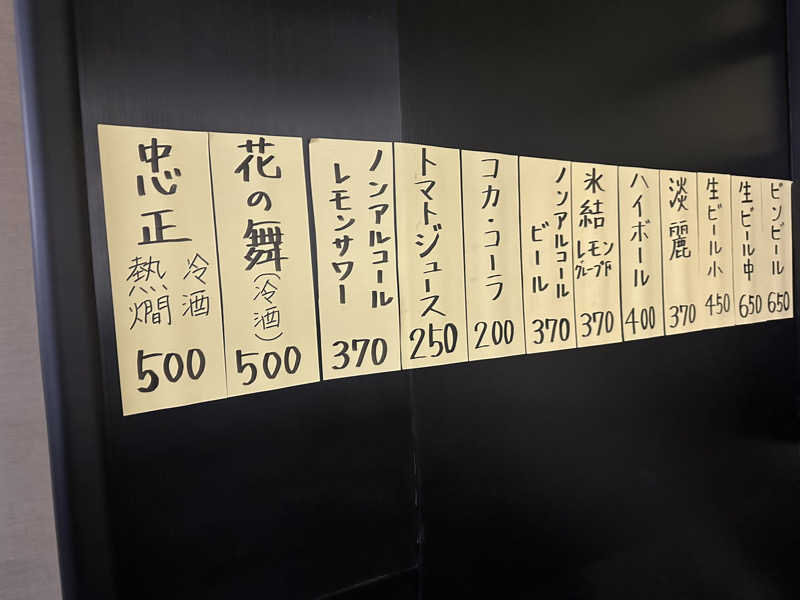 ビンビール
650
生ビール中
650
生ビール小
450
淡麗
370
ハイボール
400
氷結
レモン
グレープF
370
ノンアルコール
ビール
370
コカ・コーラ
200
トマトジュース
250
ノンアルコール
レモンサワー
370
花の舞(冷酒)
500
忠正
冷酒
熱燗
500